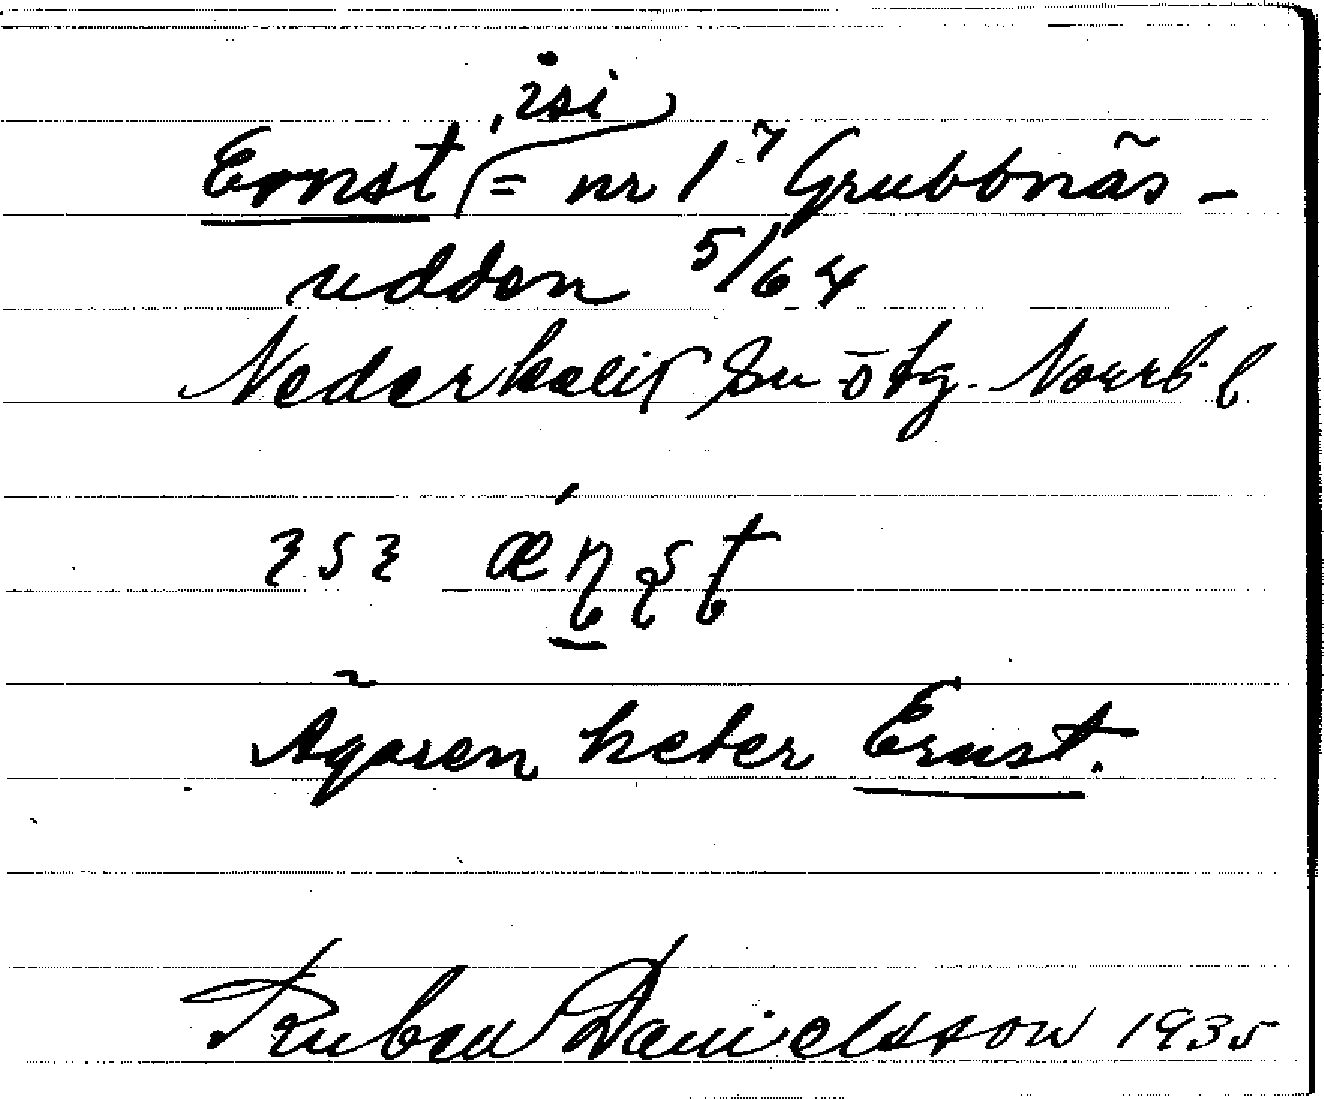 , isi
Ernst ( = nr 1⁷ Grubbnäs-
udden 5/64
Nederkalix sn ö tg. Norrb. l
ɜsɜ
Ägaren heter Ernst.
Ruben Danielsson 1935